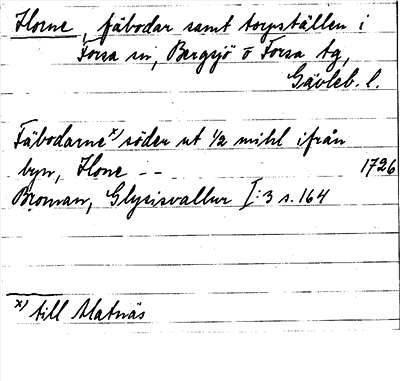 Horne, fäbodar samt torpställen i
Forsa sn, Bergsjö o Forsa tg,
Gävleb. l.
Fäbodarne x) söder ut 1/2 mihl ifrån
byn, Hone -- 1726
Broman, Glysisvallur I:3 s. 164
x) till Matnäs